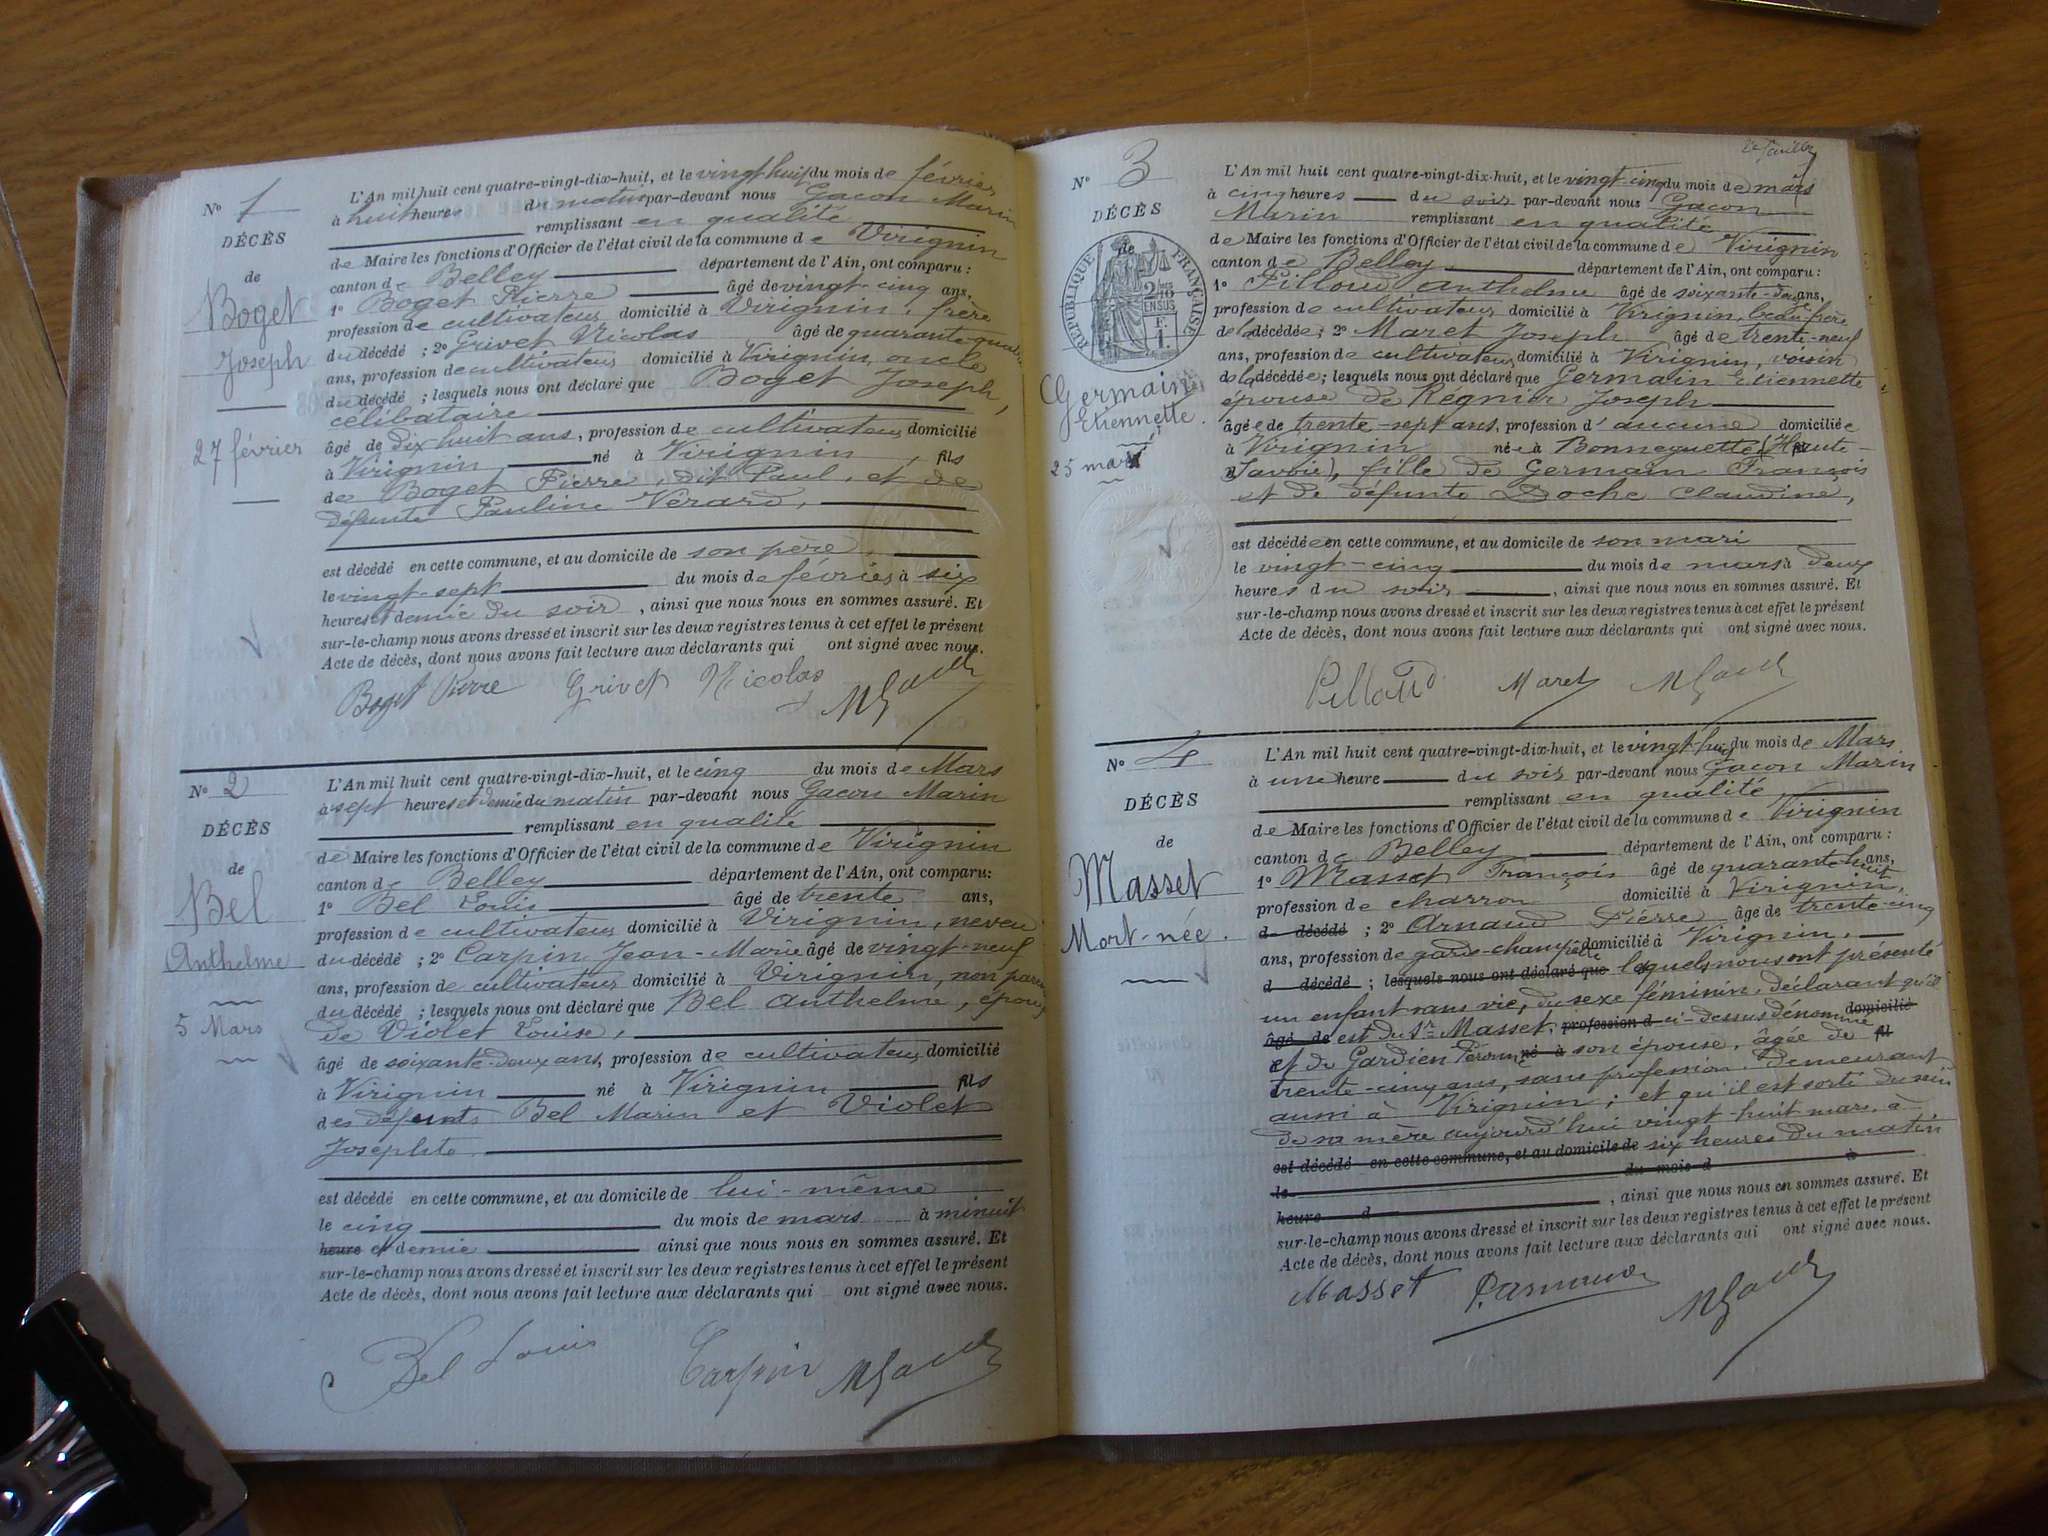 N° 1
DÉCÈS
de
Boget
Joseph
27 février
L'An mil huit cent quatre-vingt-dix-huit, et le vingt huit du mois de février
à huit heures du matin par-devant nous Gacon Marin
remplissant en qualité
de Maire les fonctions d'Officier de l'état civil de la commune de Virignin
canton de Belley département de l'Ain, ont comparu :
1° Boget Pierre âgé de vingt-cinq ans,
profession de cultivateur domicilié à Virignin, frère
du décédé ; 2° Grivet Nicolas âgé de quarante-quatre
ans, profession de cultivateur domicilié à Virignin, oncle
du décédé ; lesquels nous ont déclaré que Boget Joseph,
célibataire
âgé de dix huit ans, profession de cultivateur domicilié
à Virignin, né à Virignin, fils
de Boget Pierre, dit Paul, et de
défunte Pauline Vérard,
est décédé en cette commune, et au domicile de son père,
le vingt-sept du mois de février à six
heures et demie du soir, ainsi que nous nous en sommes assuré. Et
sur-le-champ nous avons dressé et inscrit sur les deux registres tenus à cet effet le présent
Acte de décès, dont nous avons fait lecture aux déclarants qui ont signé avec nous.
Boget Pierre Grivet Nicolas MGacon
N° 2
DÉCÈS
de
Bel
Anthelme
5 Mars
L'An mil huit cent quatre-vingt-dix-huit, et le cinq du mois de Mars
à sept heures et demie du matin par-devant nous Gacon Marin
remplissant en qualité
de Maire les fonctions d'Officier de l'état civil de la commune de Virignin
canton de Belley département de l'Ain, ont comparu:
1° Bel Louis âgé de trente ans,
profession de cultivateur domicilié à Virignin, neveu
du décédé ; 2° Carpin Jean-Marie âgé de vingt-neuf
ans, profession de cultivateur domicilié à Virignin, non parent
du décédé ; lesquels nous ont déclaré que Bel Anthelme, époux
de Violet Louise,
âgé de soixante-deux ans, profession de cultivateur domicilié
à Virignin né à Virignin fils
des défunts Bel Marin et Violet
Josephte
est décédé en cette commune, et au domicile de lui-même
le cinq du mois de mars à minuit
heure et demie ainsi que nous nous en sommes assuré. Et
sur-le-champ nous avons dressé et inscrit sur les deux registres tenus à cet effet le présent
Acte de décès, dont nous avons fait lecture aux déclarants qui ont signé avec nous.
Bel Louis Carpin MGacon
2e feuillet
N° 3
DÉCÈS
de
RÉPUBLIQUE FRANÇAISE
Germain
Etiennette.
25 mars
L'An mil huit cent quatre-vingt-dix-huit, et le vingt-cinq du mois de mars
à cinq heures du soir par-devant nous Gacon
Marin remplissant en qualité
de Maire les fonctions d'Officier de l'état civil de la commune de Virignin
canton de Belley département de l'Ain, ont comparu :
1° Pilloud Anthelme âgé de soixante-deux ans,
profession de cultivateur domicilié à Virignin, beau-père
de la décédée ; 2° Maret Joseph âgé de trente-neuf
ans, profession de cultivateur domicilié à Virignin, voisin
de la décédée ; lesquels nous ont déclaré que Germain Etiennette
épouse de Regnier Joseph
âgée de trente-sept ans, profession d'aucune domiciliée
à Virignin née à Bonneguette (Haute-
Savoie), fille de Germain François
et de défunte Doche Claudine,
est décédée en cette commune, et au domicile de son mari
le vingt-cinq du mois de mars à deux
heures du soir, ainsi que nous nous en sommes assuré. Et
sur-le-champ nous avons dressé et inscrit sur les deux registres tenus à cet effet le présent
Acte de décès, dont nous avons fait lecture aux déclarants qui ont signé avec nous.
Pilloud Maret MGacon
N° 4
DÉCÈS
de
Masset
Mort-née.
L'An mil huit cent quatre-vingt-dix-huit, et le vingt-huit du mois de Mars
à une heure du soir par-devant nous Gacon Marin
remplissant en qualité
de Maire les fonctions d'Officier de l'état civil de la commune de Virignin
canton de Belley département de l'Ain, ont comparu :
1° Masset François âgé de quarante-huit ans,
profession de charron domicilié à Virignin,
d décédé ; 2° Arnaud Pierre âgé de trente-cinq
ans, profession de garde-champêtre domicilié à Virignin,
d décédé ; lesquels nous ont déclaré que lesquels nous ont présenté
un enfant sans vie, du sexe féminin, déclarant qu'il
âgé de est du Sr Masset, profession d ci-dessus dénommé domicilié
et de Gardien né à son épouse, âgée de fil
trente-cinq ans, sans profession, demeurant
aussi à Virignin ; et qu'il est sorti du sein
de sa mère aujourd'hui vingt-huit mars, à
est décédé en cette commune, et au domicile de six heures du matin
le du mois d à
heure d, ainsi que nous nous en sommes assuré. Et
sur-le-champ nous avons dressé et inscrit sur les deux registres tenus à cet effet le présent
Acte de décès, dont nous avons fait lecture aux déclarants qui ont signé avec nous.
Masset P. Arnaud MGacon